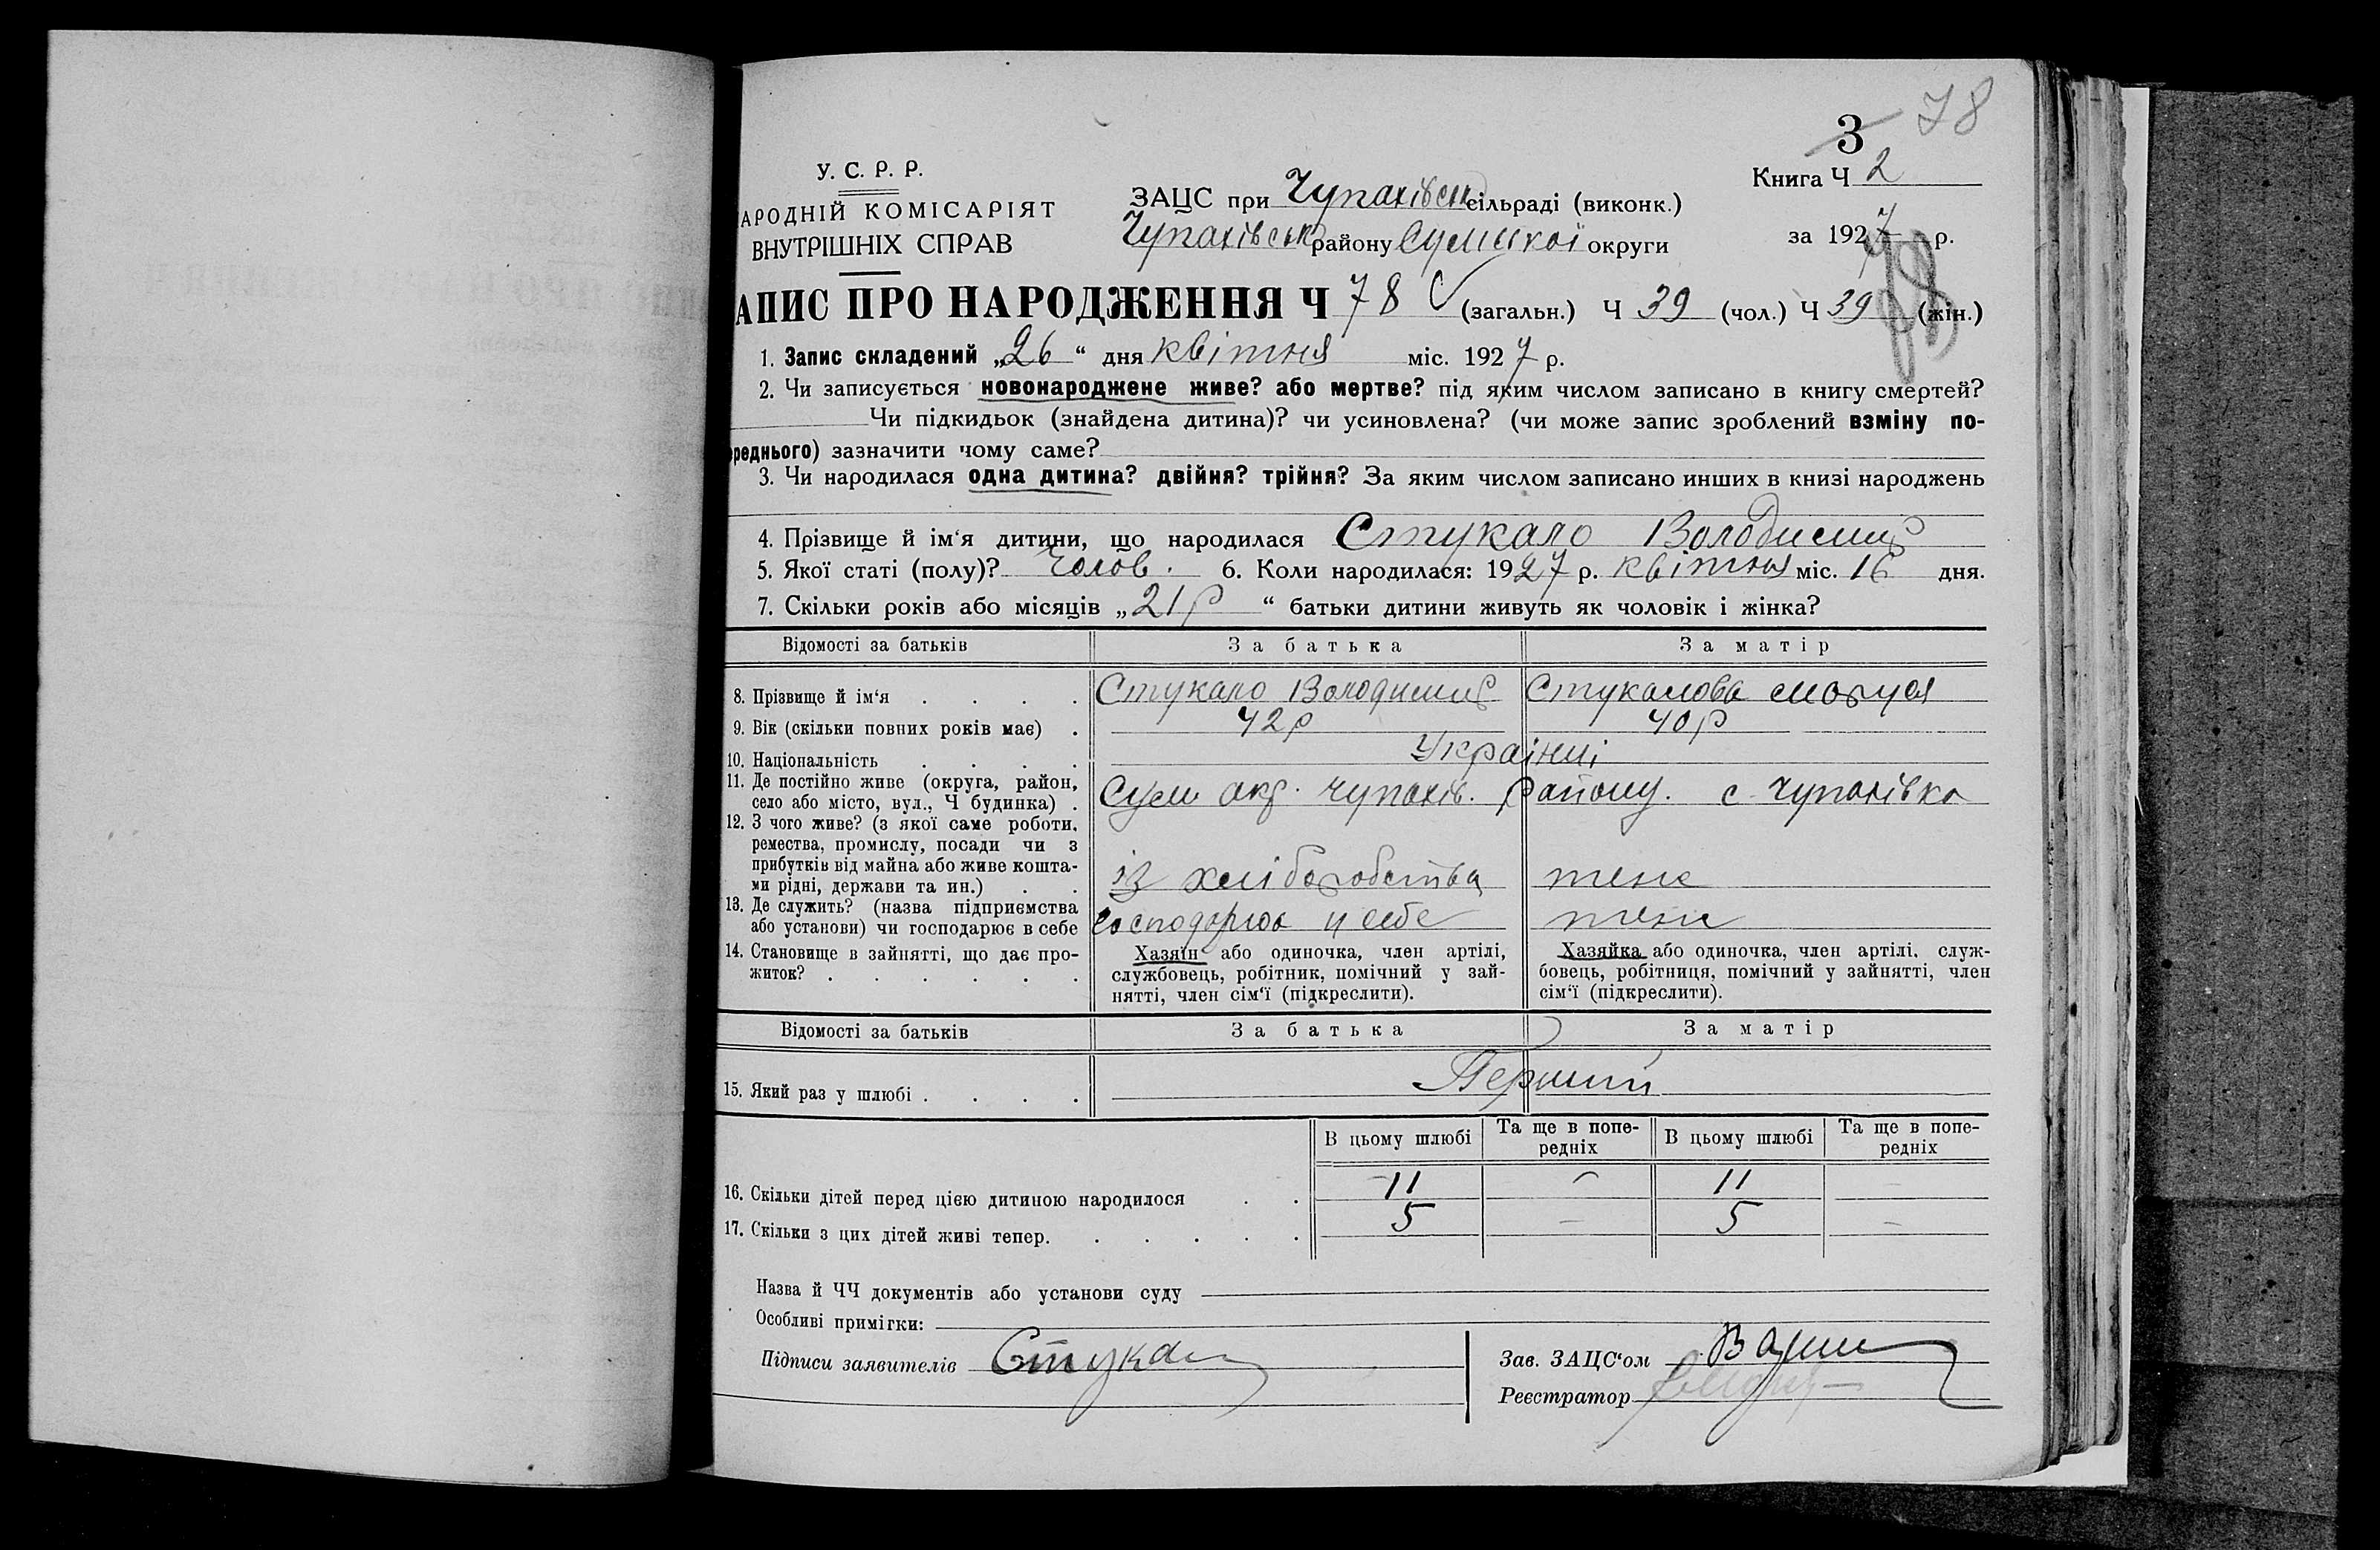 3 78
У. С. Р. Р.
АРОДНІЙ КОМІСАРІЯТ
ВНУТРІШНІХ СПРАВ
ЗАЦС при Чупахівськ сільраді (виконк.)
Чупахівськ району Сумської округи
Книга Ч 2
за 1927 р.
78
АПИС ПРО НАРОДЖЕННЯ Ч 78 (загальн.) Ч 39 (чол.) Ч 39 (жін.)
1. Запис складений „26“ дня квітня міс. 1927 р.
2. Чи записується новонароджене живе? або мертве? під яким числом записано в книгу смертей?
Чи підкидьок (знайдена дитина)? чи усиновлена? (чи може запис зроблений взміну по-
ереднього) зазначити чому саме?
3. Чи народилася одна дитина? двійня? трійня? За яким числом записано инших в книзі народжень
4. Прізвище й ім‘я дитини, що народилася Стукало Володимир
5. Якої статі (полу)? Чолов. 6. Коли народилася: 1927 р. квітня міс. 16 дня.
7. Скільки років або місяців „21 р“ батьки дитини живуть як чоловік і жінка?
Відомості за батьків За батька За матір
8. Прізвище й ім‘я . . . . Стукало Володимир Стукалова Маруся
9. Вік (скільки повних років має) . 42 р 40 р
10. Національність . . . . Українці
11. Де постійно живе (округа, район,
село або місто, вул., Ч будинка) . Сум окр. Чупахів. району. с. Чупахівка
12. З чого живе? (з якої саме роботи,
ремества, промислу, посади чи з
прибутків від майна або живе кошта-
ми рідні, держави та ин.) . . із хліборобства теж
13. Де служить? (назва підприємства
або установи) чи господарює в себе господарює у себе теж
14. Становище в зайнятті, що дає про-
житок? . . . . . .
Хазяїн або одиночка, член артілі,
службовець, робітник, помічний у зай-
нятті, член сім‘ї (підкреслити).
Хазяйка або одиночка, член артілі, служ-
бовець, робітниця, помічний у зайнятті, член
сім‘ї (підкреслити).
Відомості за батьків За батька За матір
15. Який раз у шлюбі . . . . Перший
В цьому шлюбі Та ще в попе-
редніх В цьому шлюбі Та ще в попе-
редніх
16. Скільки дітей перед цією дитиною народилося . . 11 – 11 –
17. Скільки з цих дітей живі тепер. . . . . . 5 – 5 –
Назва й ЧЧ документів або установи суду
Особливі примітки:
Підписи заявителів Стукал
Зав. ЗАЦС‘ом
Реєстратор